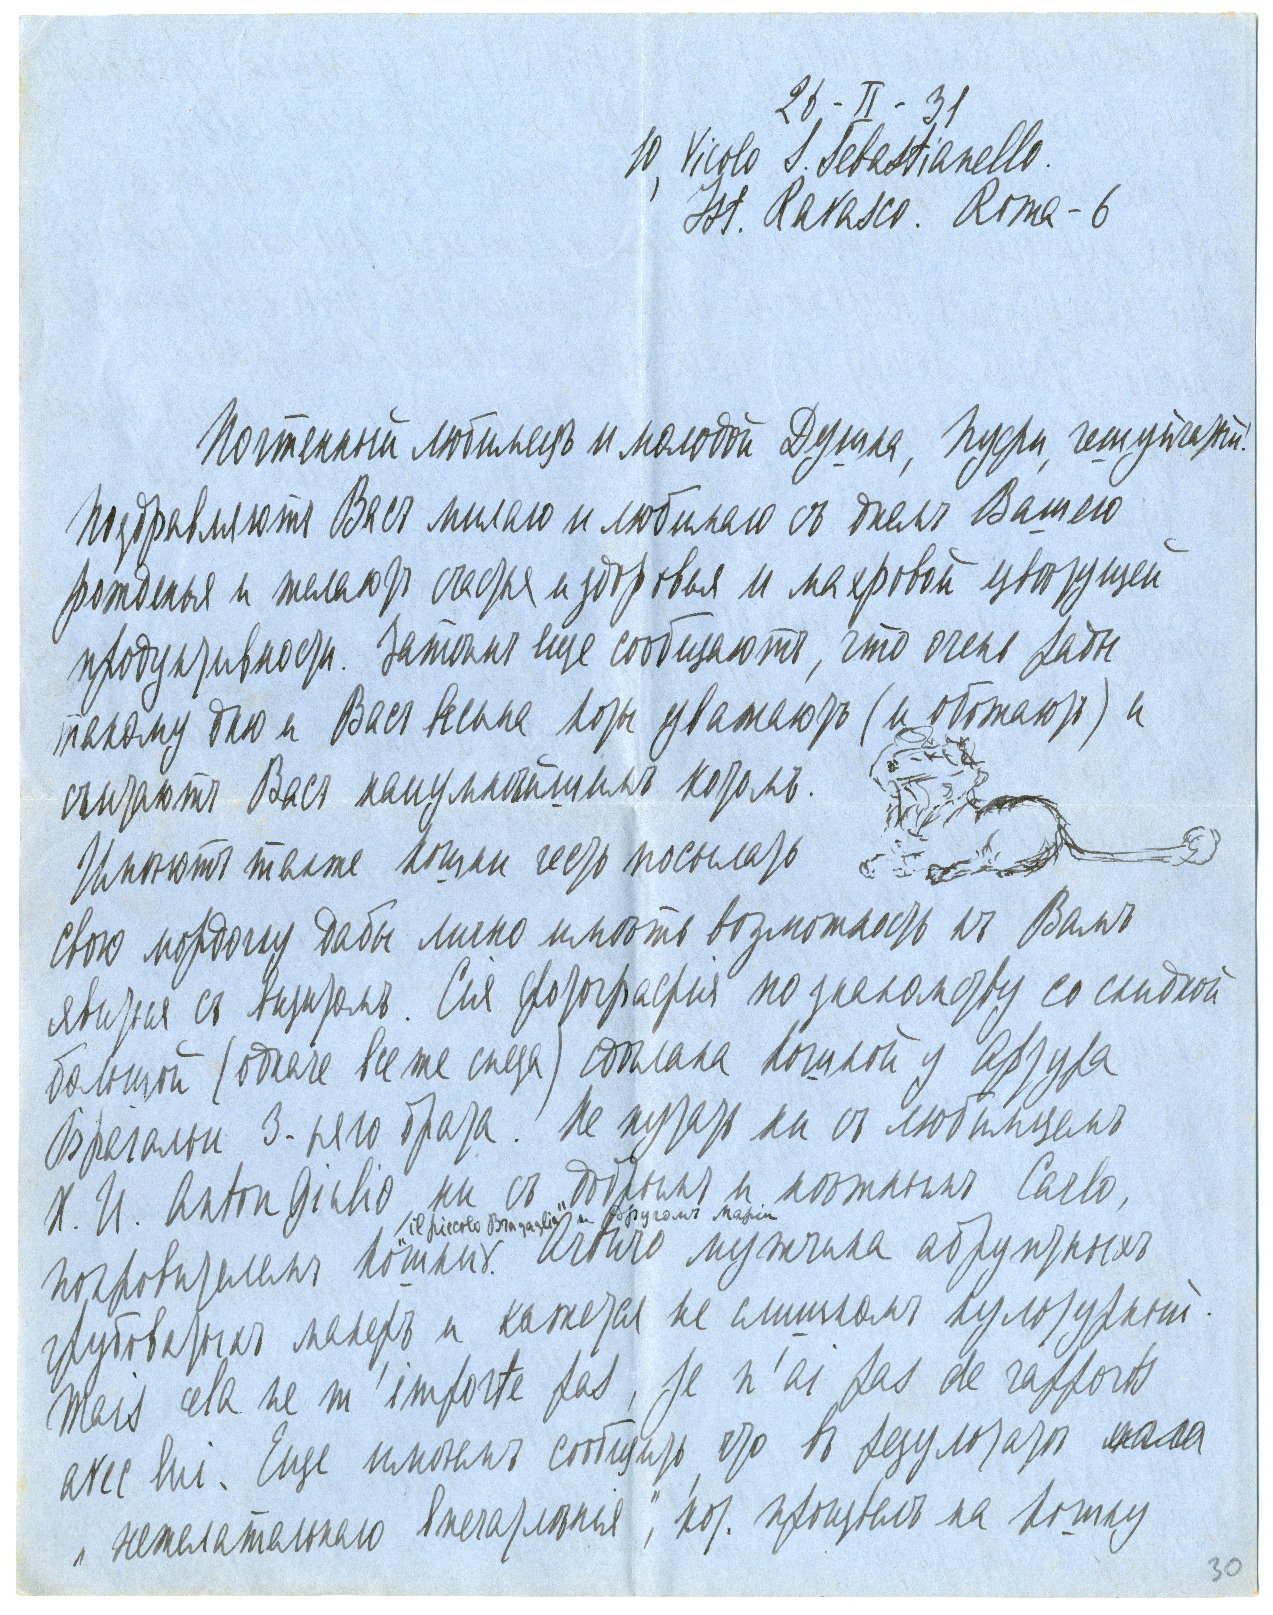 26 - II - 31
10, Vicolo S. Sebastianello.
Ist. Ravasco. Roma - 6
Почтенный любимецъ и молодой Душка, Пусри, чешуйчатый!
Поздравляютъ Васъ милаго и любимаго съ днемъ Вашего
рожденья и желаютъ счастья и здоровья и махровой цвѣтущей
продуктивности. Затѣмъ еще сообщаютъ, что очень рады
такому дню и Васъ весьма коты уважаютъ (и обожаютъ) и
считаютъ Васъ наиумнѣйшимъ котомъ.
Имѣютъ также кошки честь послать
свою мордочку дабы лично имѣть возможность къ Вамъ
явиться съ визитомъ. Сія фотографія по знакомству со скидкой
большой (одначе все же снеда) сдѣлана кошкой у Артура
Брагальи 3-няго брата. Не путать ни съ любимцемъ
К. И. Anton Giulio ни съ добрымъ и нѣжнымъ Carlo,
"il piccolo Bragaglia" и другомъ Маріи
покровителемъ кошки. Arturo мужчина абруцкихъ
грубоватыхъ манеръ и кажется не слишкомъ культурный.
Mais cela ne m'importe pas, je n'ai pas de rapports
avec lui. Еще имѣемъ сообщить, что въ результатѣ
„нежелательнаго впечатлѣнія", кот. произвелъ на кошку
30